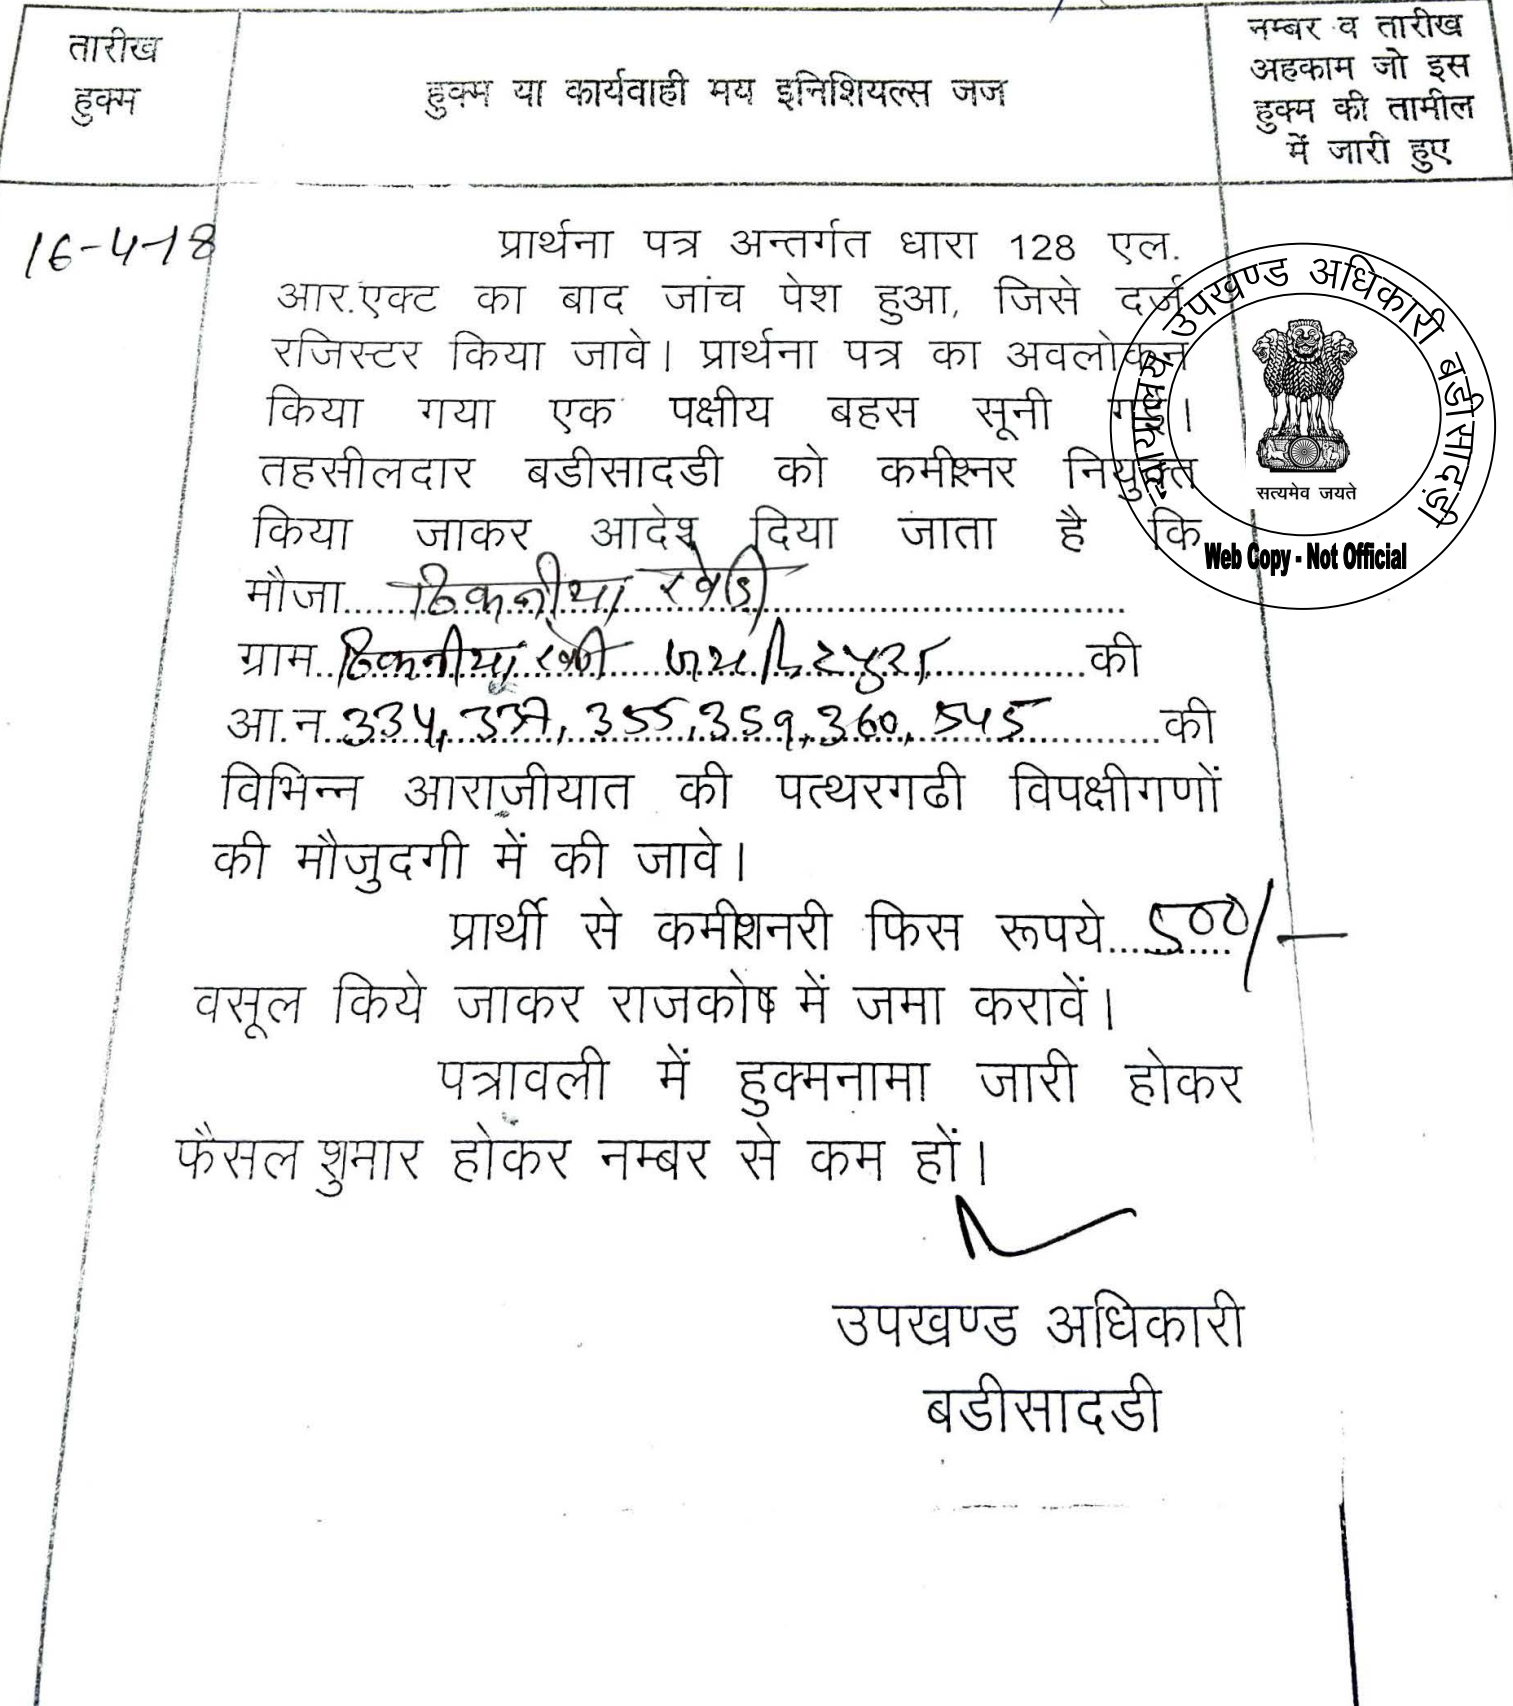 तारीख
हुक्म
हुक्म या कार्यवाही मय इनिशियल्स जज
नम्बर व तारीख
अहकाम जो इस
हुक्म की तामील
में जारी हुए
16-4-18
प्रार्थना पत्र अन्तर्गत धारा 128 एल.
आर.एक्ट का बाद जांच पेश हुआ, जिसे दर्ज
रजिस्टर किया जावे। प्रार्थना पत्र का अवलोकन
किया गया एक पक्षीय बहस सूनी गई।
तहसीलदार बडीसादडी को कमीश्नर नियुक्त
किया जाकर आदेश दिया जाता है कि
मौजा
ग्राम की
आ.न 334, 337, 355, 359, 360, 545 की
विभिन्न आराजीयात की पत्थरगढी विपक्षीगणों
की मौजुदगी में की जावे।
प्रार्थी से कमीशनरी फिस रूपये 500/-
वसूल किये जाकर राजकोष में जमा करावें।
पत्रावली में हुक्मनामा जारी होकर
फैसल शुमार होकर नम्बर से कम हों।
उपखण्ड अधिकारी
बडीसादडी
कार्यालय उपखण्ड अधिकारी बडीसादड़ी
सत्यमेव जयते
Web Copy - Not Official